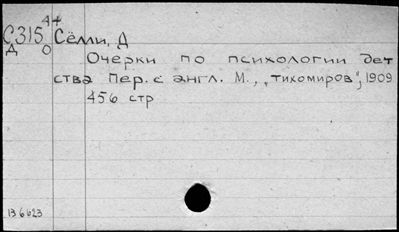 4+
С315 Сёлли, Д
Д О
Очерки по психологии дет
ства Пер. с англ. М., „тихомиров", 1909
456 стр
136623